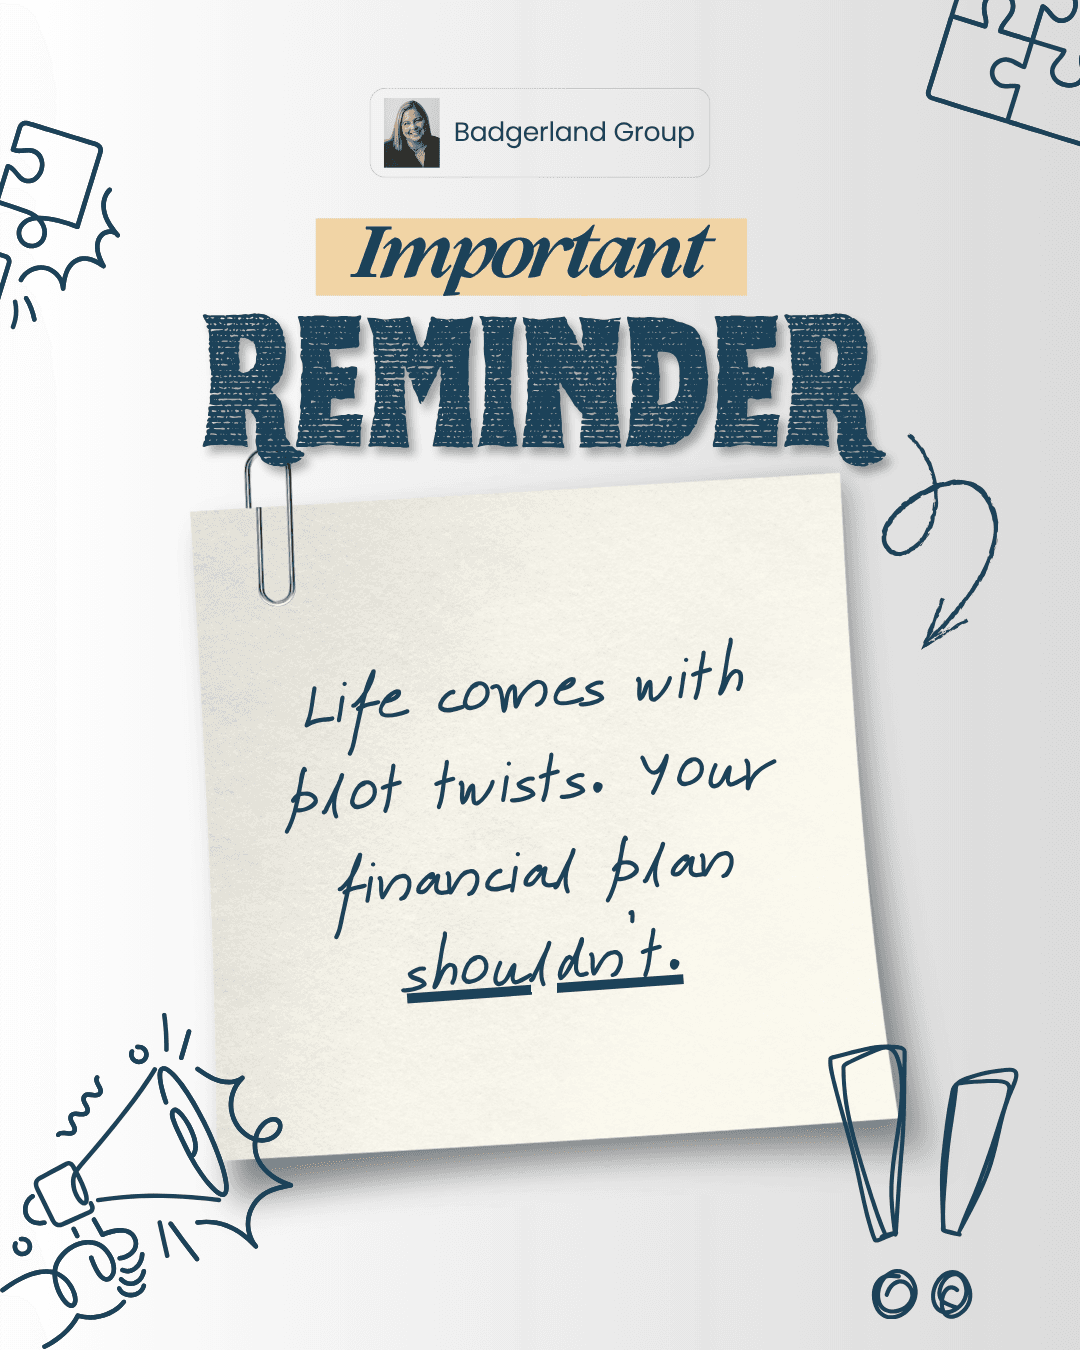 Badgerland Group
Important
REMINDER
Life comes with
plot twists. Your
financial plan
shouldn't.